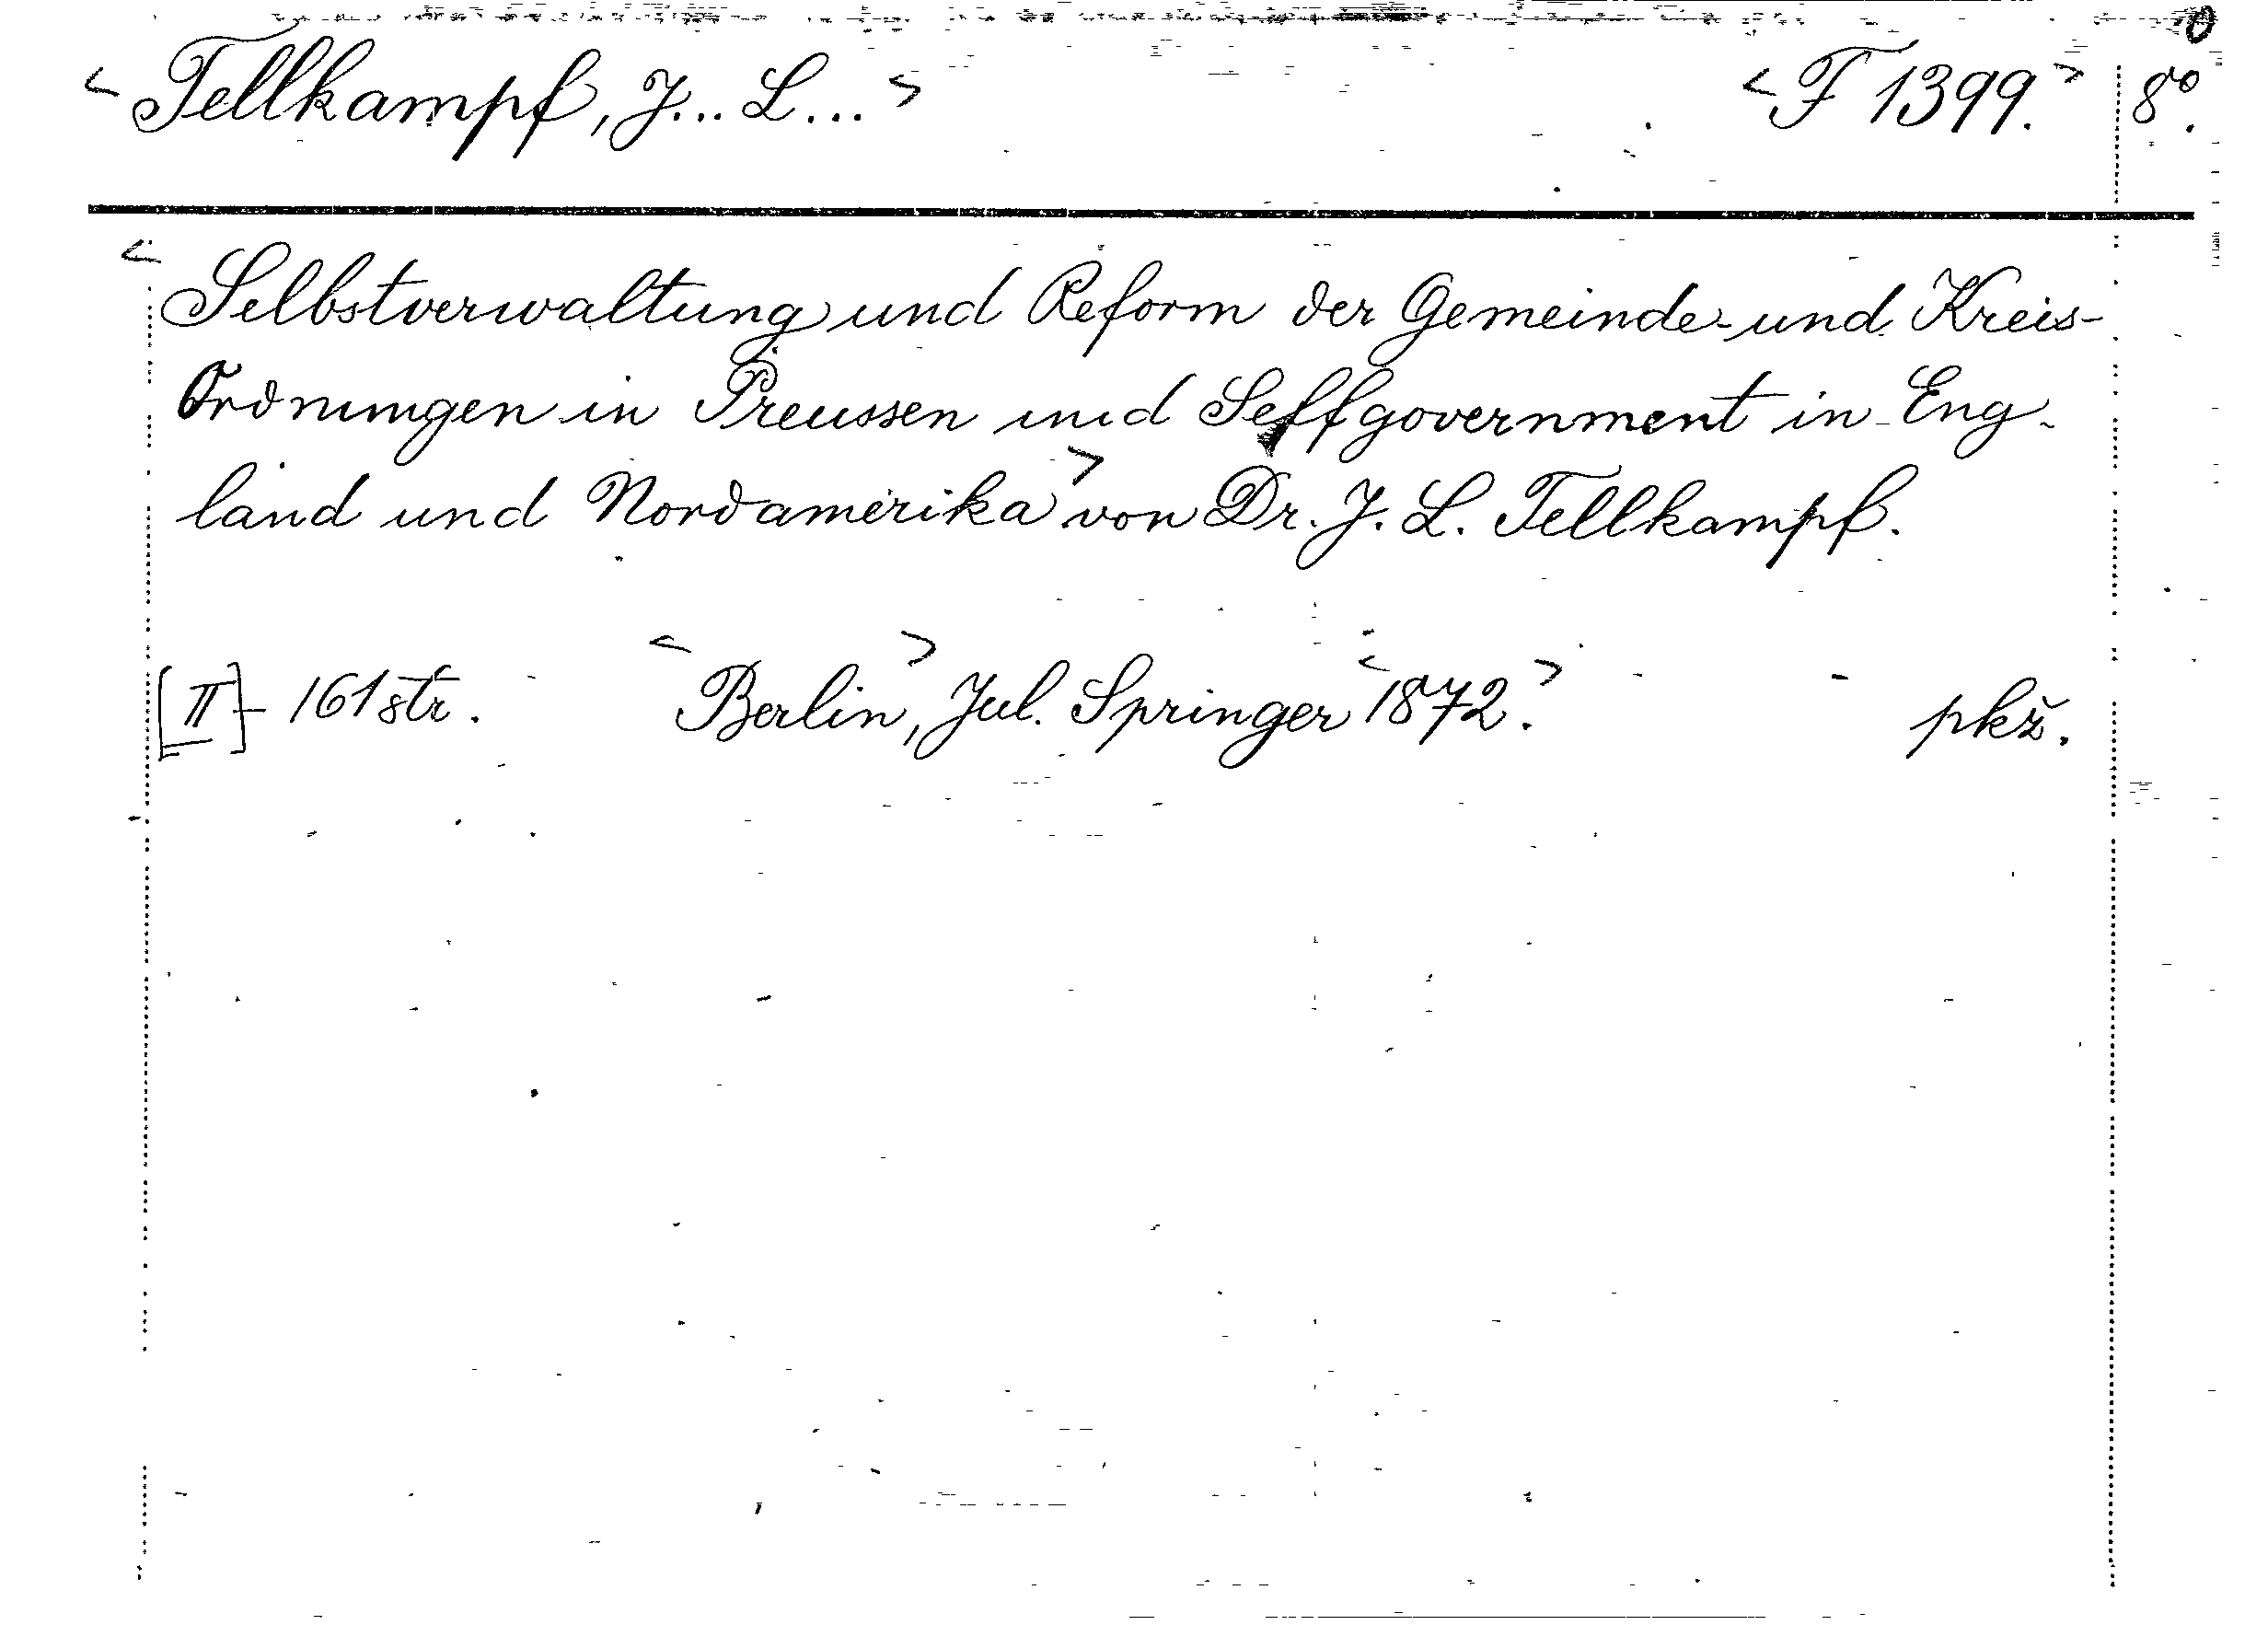 < Tellkampf, J... L... > < F 1399. > 8°.
< Selbstverwaltung und Reform der Gemeinde- und Kreis-
Ordnungen in Preussen und Selfgovernment in Eng-
land und Nordamerika > von Dr. J. L. Tellkampf.
[II] - 161 str. < Berlin >, Jul. Springer < 1872. > pkž.